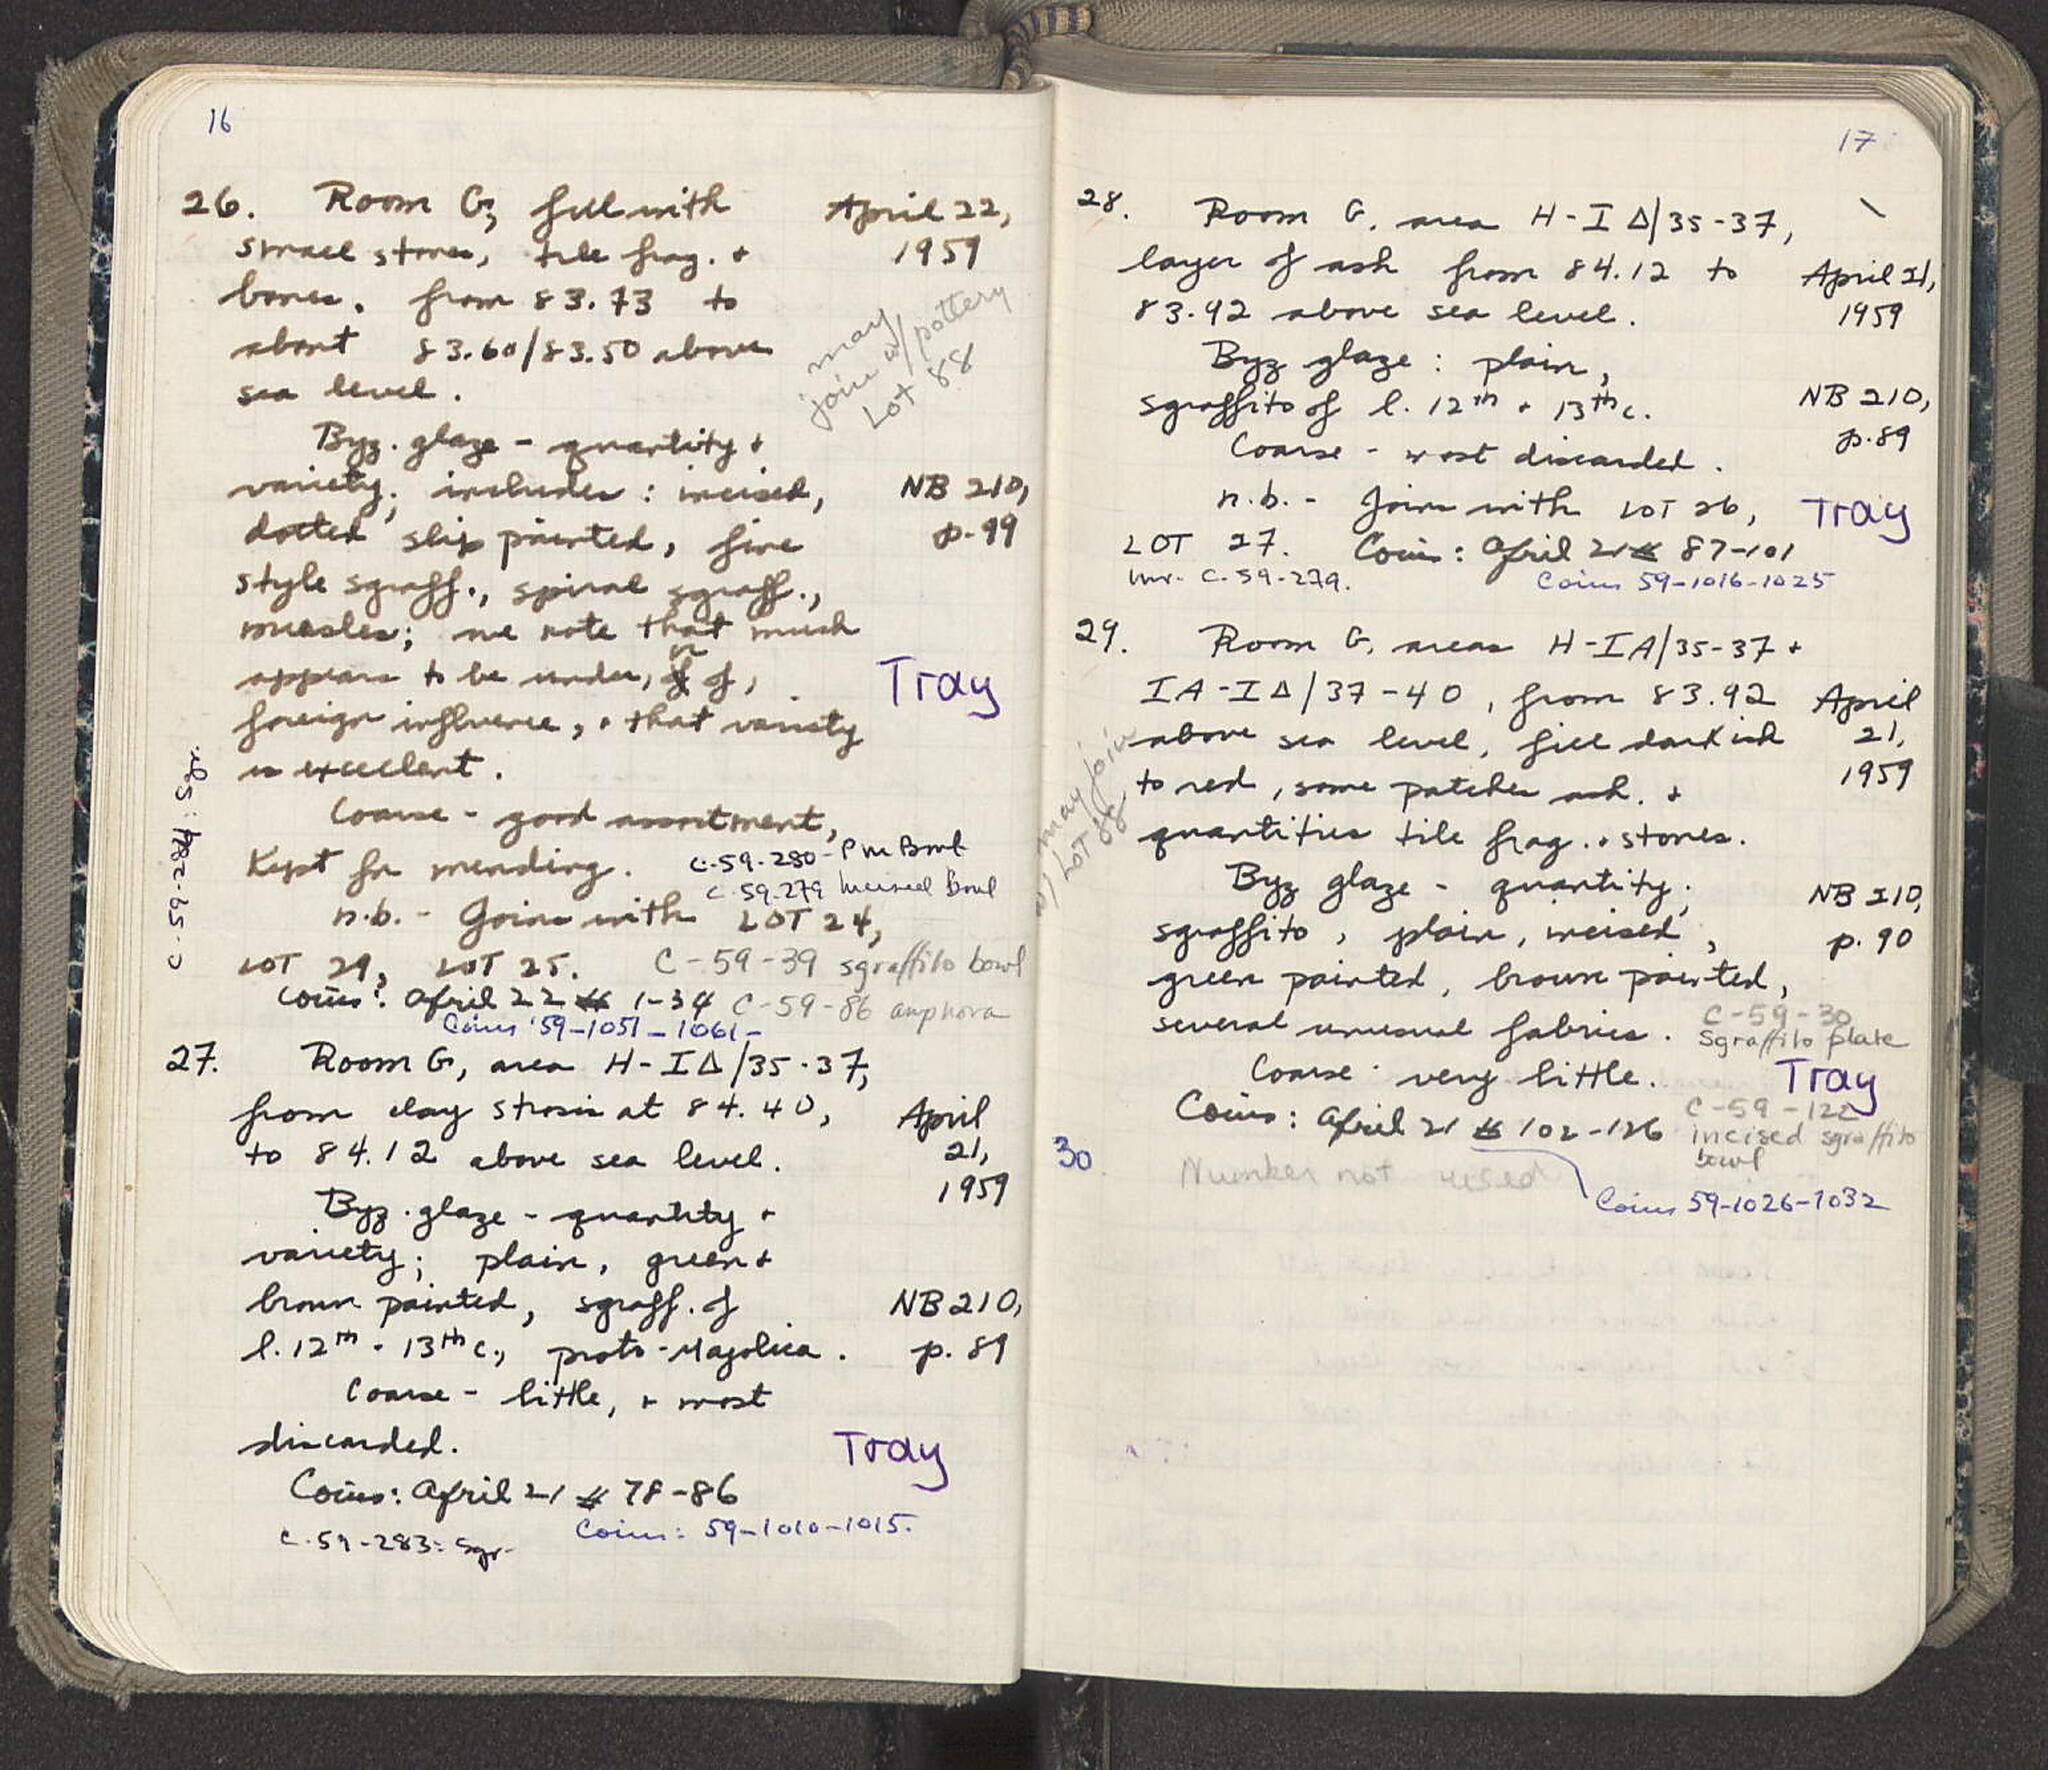 16
26. Room G, fill with
small stones, tile frag. +
bones, from 83.73 to
about 83.60/83.50 above
sea level.
April 22,
1959
may
join w/ pottery
Lot 88
Byz. glaze - quantity +
variety; includes: incised,
dotted slip painted, fine
style sgraff., spiral sgraff.,
measles; we note that much
appears to be under, or of,
foreign influence, + that variety
is excellent.
NB 210,
p. 99
Tray
Coarse - good assortment,
Kept for mending.
C-59-280 - Pm Bowl
C-59-279 Incised Bowl
n.b. - Joins with LOT 24,
LOT 29, LOT 25.
C-59-39 sgraffito bowl
Coins: April 22 # 1-34
C-59-86 amphora
Coins '59-1051-1061-
C-59-284: Sgr.
27. Room G, area H-IΔ/35-37,
from clay strosis at 84.40,
to 84.12 above sea level.
April
21,
1959
Byz. glaze - quantity +
variety; plain, green +
brown painted, sgraff. of
l. 12th - 13th c., proto-Majolica.
NB 210,
p. 89
Coarse - little, + most
discarded.
Tray
Coins: April 21 # 78-86
Coins: 59-1010-1015.
C-59-283: Sgr.
17
28. Room G, area H-IΔ/35-37,
layer of ash from 84.12 to
83.92 above sea level.
April 21,
1959
Byz glaze: plain,
sgraffito of l. 12th + 13th c.
Coarse - most discarded.
NB 210,
p. 89
n.b. - Joins with LOT 26,
LOT 27. Coins: April 21 # 87-101
Tray
Inv. C-59-279.
Coins 59-1016-1025
29. Room G, areas H-IA/35-37 +
IA-IΔ/37-40, from 83.92
above sea level, fill darkish
to red, some patches ash, +
quantities tile frag. + stones.
April
21,
1959
may join
w/ Lot 88
Byz glaze - quantity;
sgraffito, plain, incised,
green painted, brown painted,
several unusual fabrics.
NB 210,
p. 90
C-59-30
Sgraffito plate
Coarse - very little.
Tray
Coins: April 21 # 102-126
C-59-122
incised sgraffito
bowl
30. Number not used
Coins 59-1026-1032